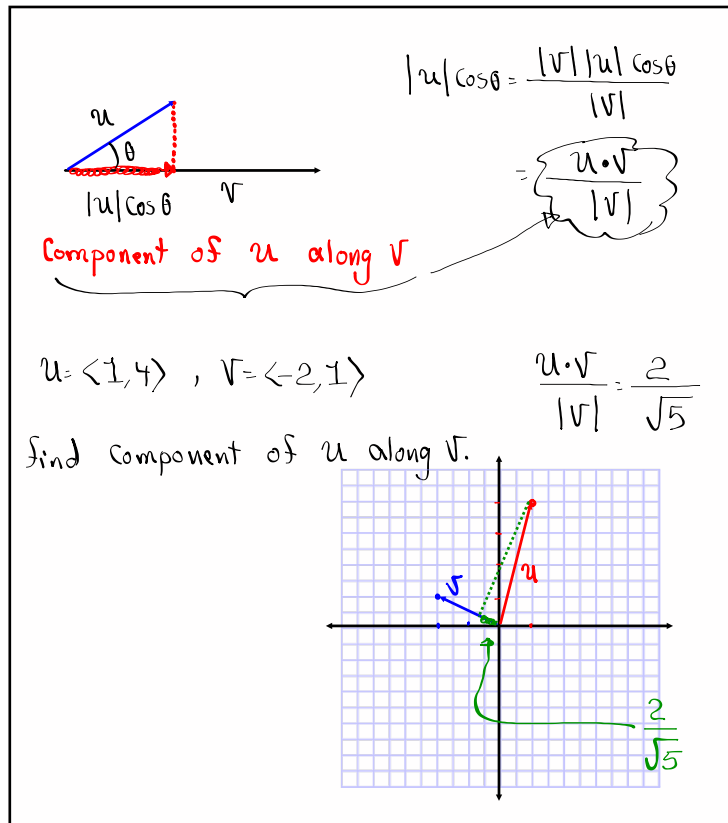 |u|cosθ = |v||u|cosθ / |v|
u
θ
= u·v / |v|
|u|cosθ
v
Component of u along v
u=<1,4> , v=<-2,1>
u·v / |v| = 2 / √5
find component of u along v.
v
u
2 / √5